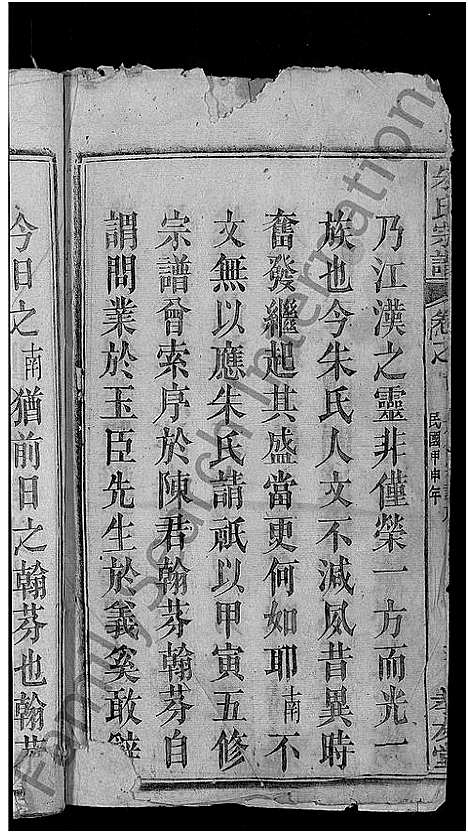 朱氏宗譜 卷之 民國甲申年
乃江漢之靈非僅榮一方而光一
族也今朱氏人文不減夙昔異時
奮發繼起其盛當更何如耶南不
文無以應朱氏請祇以甲寅五修
宗譜曾索序於陳君翰芬翰芬自
謂問業於玉臣先生於義奚敢辭
今日之南猶前日之翰芬也翰芬
Family Search International